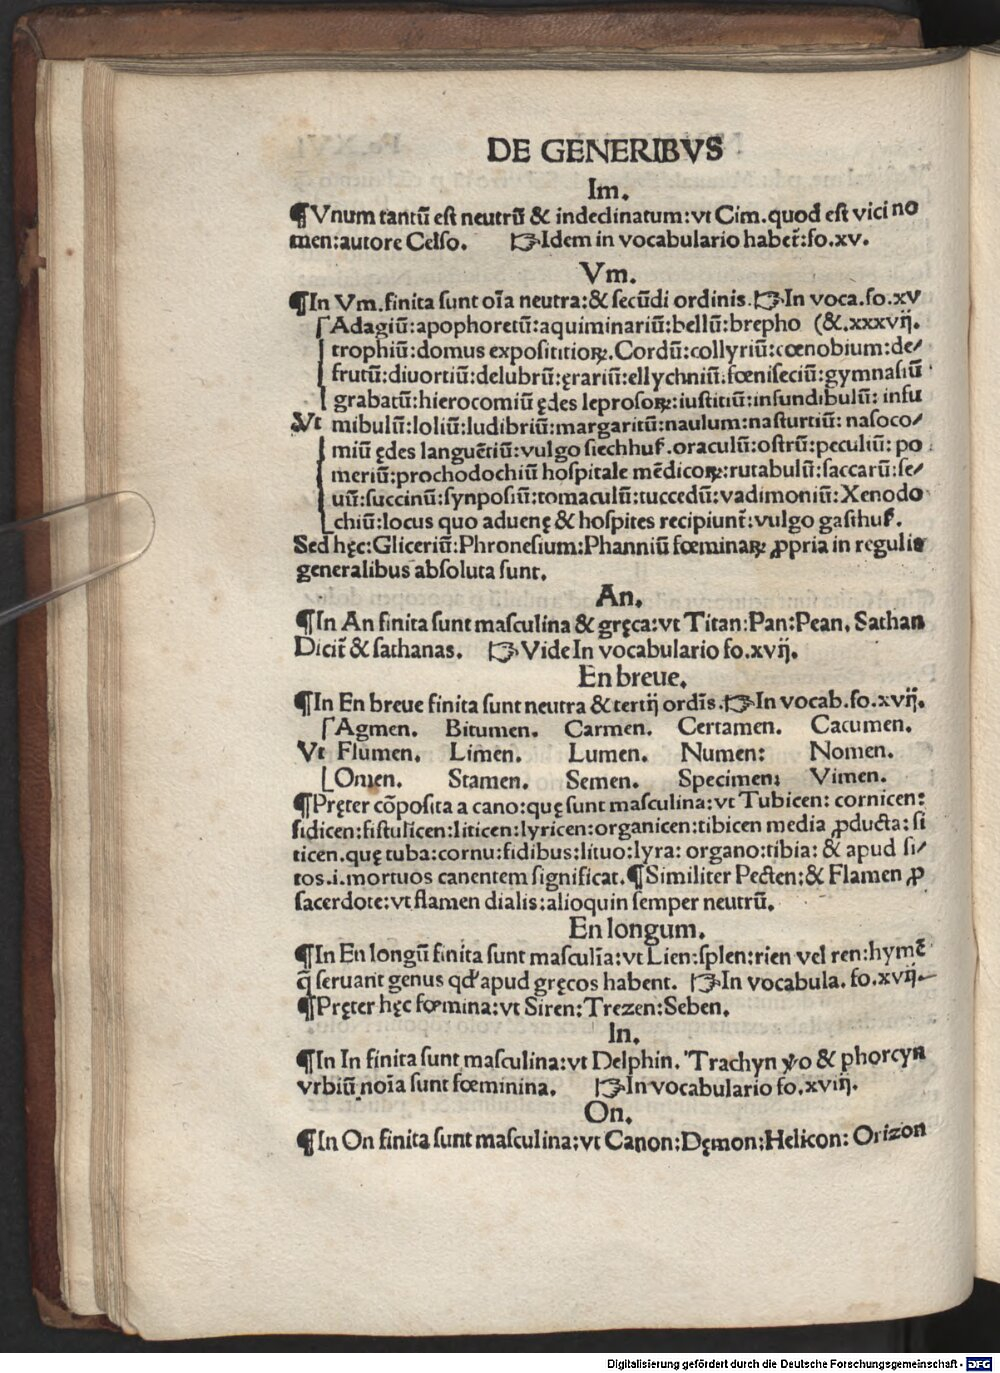 DE GENERIBVS
Im.
¶Vnum tantũ eſt neutrũ & indeclinatum:vt Cim.quod eſt vici no
men:autore Celſo. ☞Idem in vocabulario habet̃:fo.xv.
Vm.
¶In Vm.finita ſunt oĩa neutra:& ſecũdi ordinis.☞In voca.fo.xv
Adagiũ:apophoretũ:aquiminariũ:bellũ:brepho (&.xxxvij.
trophiũ:domus expoſititioꝝ.Cordũ:collyriũ:cœnobium:de⸗
frutũ:diuortiũ:delubrũ:ęrariũ:ellychniũ:fœniſeciũ:gymnaſiũ
grabatũ:hierocomiũ ędes leproſoꝝ:iuſtitiũ:infundibulũ: infu
Vt mibulũ:loliũ:ludibriũ:margaritũ:naulum:naſturtiũ: naſoco⸗
miũ ędes languẽtiũ:vulgo ſiechhuſ.oraculũ:oſtrũ:peculiũ: po
meriũ:prochodochiũ hoſpitale mẽdicoꝝ:rutabulũ:ſaccarũ:ſe⸗
uũ:ſuccinũ:ſynpoſiũ:tomaculũ:tuccedũ:vadimoniũ:Xenodo
chiũ:locus quo aduenę & hoſpites recipiunt̃:vulgo gaſthuſ.
Sed hęc:Gliceriũ:Phroneſium:Phanniũ fœminaꝝ ꝓpria in regulis
generalibus abſoluta ſunt.
An.
¶In An finita ſunt maſculina & gręca:vt Titan:Pan:Pean. Sathan
Dicit̃ & ſathanas. ☞Vide In vocabulario fo.xvij.
En breue.
¶In En breue finita ſunt neutra & tertij ordĩs.☞In vocab.fo.xvij.
Agmen. Bitumen. Carmen. Certamen. Cacumen.
Vt Flumen. Limen. Lumen. Numen: Nomen.
Omen. Stamen. Semen. Specimen: Vimen.
¶Pręter cõpoſita a cano:quę ſunt maſculina:vt Tubicen: cornicen:
fidicen:fiſtulicen:liticen:lyricen:organicen:tibicen media ꝓducta: ſi
ticen.quę tuba:cornu:fidibus:lituo:lyra: organo:tibia: & apud ſi⸗
tos.i.mortuos canentem ſignificat.¶Similiter Pecten:& Flamen ꝓ
ſacerdote:vt flamen dialis:alioquin ſemper neutrũ.
En longum.
¶In En longũ finita ſunt maſculĩa:vt Lien:ſplen:rien vel ren:hymẽ
q̃ ſeruant genus qd' apud gręcos habent. ☞In vocabula. fo.xvij.
¶Pręter hęc fœmina:vt Siren:Trezen:Seben.
In.
¶In In finita ſunt maſculina:vt Delphin. Trachyn ꝟo & phorcyn
vrbiũ noĩa ſunt fœminina. ☞In vocabulario fo.xviij.
On.
¶In On finita ſunt maſculina:vt Canon:Dęmon:Helicon: Orizon
Digitalisierung gefördert durch die Deutsche Forschungsgemeinschaft - DFG